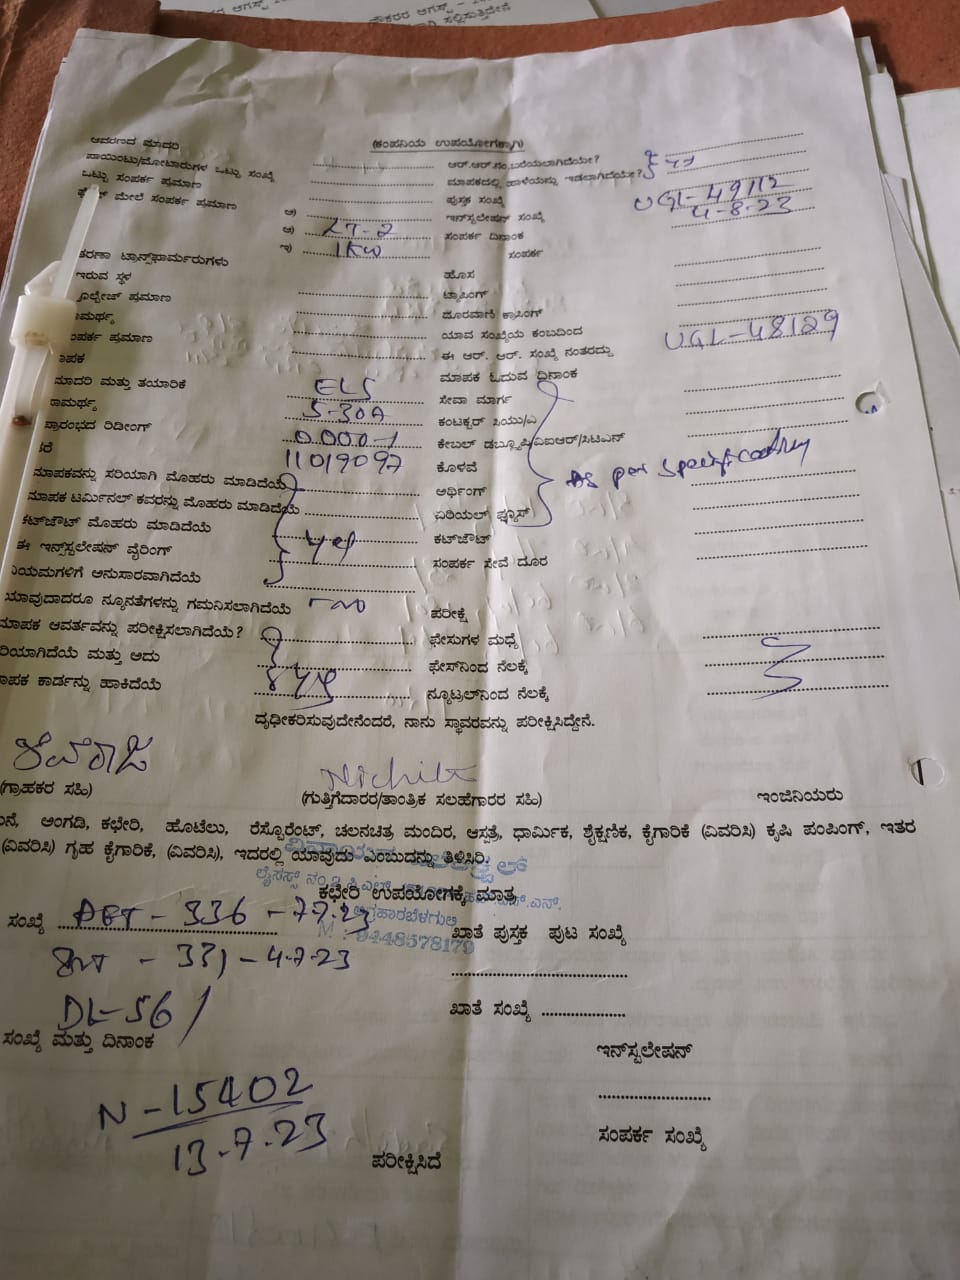 (ಕಂಪನಿಯ ಉಪಯೋಗಕ್ಕಾಗಿ)
ಆವರಣದ ಮಾದರಿ
ಪಾಯಿಂಟು/ಮೋಟಾರುಗಳ ಒಟ್ಟು ಸಂಖ್ಯೆ
ಆರ್.ಆರ್.ನಂ.ಬರೆಯಲಾಗಿದೆಯೇ?
ಒಟ್ಟು ಸಂಪರ್ಕ ಪ್ರಮಾಣ
ಮಾಪಕದಲ್ಲಿ ಹಾಳೆಯನ್ನು ಇಡಲಾಗಿದೆಯೇ?
ಮೇಲೆ ಸಂಪರ್ಕ ಪ್ರಮಾಣ
ಪುಸ್ತಕ ಸಂಖ್ಯೆ
ಅ)
ಇನ್‌ಸ್ಟಲೇಷನ್ ಸಂಖ್ಯೆ UGL-49112
ಆ) LT-2
ಸಂಪರ್ಕ ದಿನಾಂಕ 4-8-23
ಇ) 1KW
ಸಂಪರ್ಕ
ತರಣಾ ಟ್ರಾನ್ಸ್‌ಫಾರ್ಮರುಗಳು
ಇರುವ ಸ್ಥಳ
ಹೊಸ
ವೋಲ್ಟೇಜ್ ಪ್ರಮಾಣ
ಟ್ಯಾಪಿಂಗ್
ಾಮರ್ಥ್ಯ
ದೂರವಾಣಿ ಕ್ರಾಸಿಂಗ್
ಂಪರ್ಕ ಪ್ರಮಾಣ
ಯಾವ ಸಂಖ್ಯೆಯ ಕಂಬದಿಂದ
ಾಪಕ
ಈ ಆರ್. ಆರ್. ಸಂಖ್ಯೆ ನಂತರದ್ದು UGL-48129
ಮಾಪಕ ಓದುವ ದಿನಾಂಕ
ಮಾದರಿ ಮತ್ತು ತಯಾರಿಕೆ ELS
ಸೇವಾ ಮಾರ್ಗ
ಾಮರ್ಥ್ಯ 5-30A
ಕಂಟಕ್ಟರ್ ಸಿಯು/ಎ
ಪ್ರಾರಂಭದ ರಿಡೀಂಗ್ 0.000-1
ಕೇಬಲ್ ಡಬ್ಲ್ಯೂಪಿ/ವಿಐಆರ್/ಸಿಟಿಎನ್
11019097
ಕೊಳವೆ
As per specification
ಮಾಪಕವನ್ನು ಸರಿಯಾಗಿ ಮೊಹರು ಮಾಡಿದೆಯೆ
ಅರ್ಥಿಂಗ್
ಮಾಪಕ ಟರ್ಮಿನಲ್ ಕವರನ್ನು ಮೊಹರು ಮಾಡಿದೆಯೆ
ಏರಿಯಲ್ ಫ್ಯೂಸ್
ಕಟ್‌ಔಟ್ ಮೊಹರು ಮಾಡಿದೆಯೆ yes
ಕಟ್‌ಔಟ್
ಈ ಇನ್ಸ್‌ಟಲೇಷನ್ ವೈರಿಂಗ್
ಸಂಪರ್ಕ ಸೇವೆ ದೂರ
ನಿಯಮಗಳಿಗೆ ಅನುಸಾರವಾಗಿದೆಯೆ
ಯಾವುದಾದರೂ ನ್ಯೂನತೆಗಳನ್ನು ಗಮನಿಸಲಾಗಿದೆಯೆ
ಪರೀಕ್ಷೆ
ಮಾಪಕ ಆವರ್ತವನ್ನು ಪರೀಕ್ಷಿಸಲಾಗಿದೆಯೆ?
ಫೇಸುಗಳ ಮಧ್ಯೆ
ರಿಯಾಗಿದೆಯೆ ಮತ್ತು ಅದು
ಫೇಸ್‌ನಿಂದ ನೆಲಕ್ಕೆ
ಾಪಕ ಕಾರ್ಡನ್ನು ಹಾಕಿದೆಯೆ yes
ನ್ಯೂಟ್ರಲ್‌ನಿಂದ ನೆಲಕ್ಕೆ
ದೃಢೀಕರಿಸುವುದೇನೆಂದರೆ, ನಾನು ಸ್ಥಾವರವನ್ನು ಪರೀಕ್ಷಿಸಿದ್ದೇನೆ.
(ಗ್ರಾಹಕರ ಸಹಿ)
(ಗುತ್ತಿಗೆದಾರರ/ತಾಂತ್ರಿಕ ಸಲಹೆಗಾರರ ಸಹಿ)
ಇಂಜಿನಿಯರು
ನೆ, ಅಂಗಡಿ, ಕಛೇರಿ, ಹೊಟೆಲು, ರೆಸ್ಟೊರೆಂಟ್, ಚಲನಚಿತ್ರ ಮಂದಿರ, ಆಸ್ಪತ್ರೆ, ಧಾರ್ಮಿಕ, ಶೈಕ್ಷಣಿಕ, ಕೈಗಾರಿಕೆ (ವಿವರಿಸಿ) ಕೃಷಿ ಪಂಪಿಂಗ್, ಇತರ
(ವಿವರಿಸಿ) ಗೃಹ ಕೈಗಾರಿಕೆ, (ವಿವರಿಸಿ), ಇದರಲ್ಲಿ ಯಾವುದು ಎಂಬುದನ್ನು ತಿಳಿಸಿರಿ.
ಕಛೇರಿ ಉಪಯೋಗಕ್ಕೆ ಮಾತ್ರ
M : 9448578179
ಸಂಖ್ಯೆ - 336 - 7.7.23
ಖಾತೆ ಪುಸ್ತಕ ಪುಟ ಸಂಖ್ಯೆ
- 331 - 4.7.23
DL-56/
ಖಾತೆ ಸಂಖ್ಯೆ
ಸಂಖ್ಯೆ ಮತ್ತು ದಿನಾಂಕ
ಇನ್‌ಸ್ಟಲೇಷನ್
N-15402
13-7-23
ಸಂಪರ್ಕ ಸಂಖ್ಯೆ
ಪರೀಕ್ಷಿಸಿದೆ